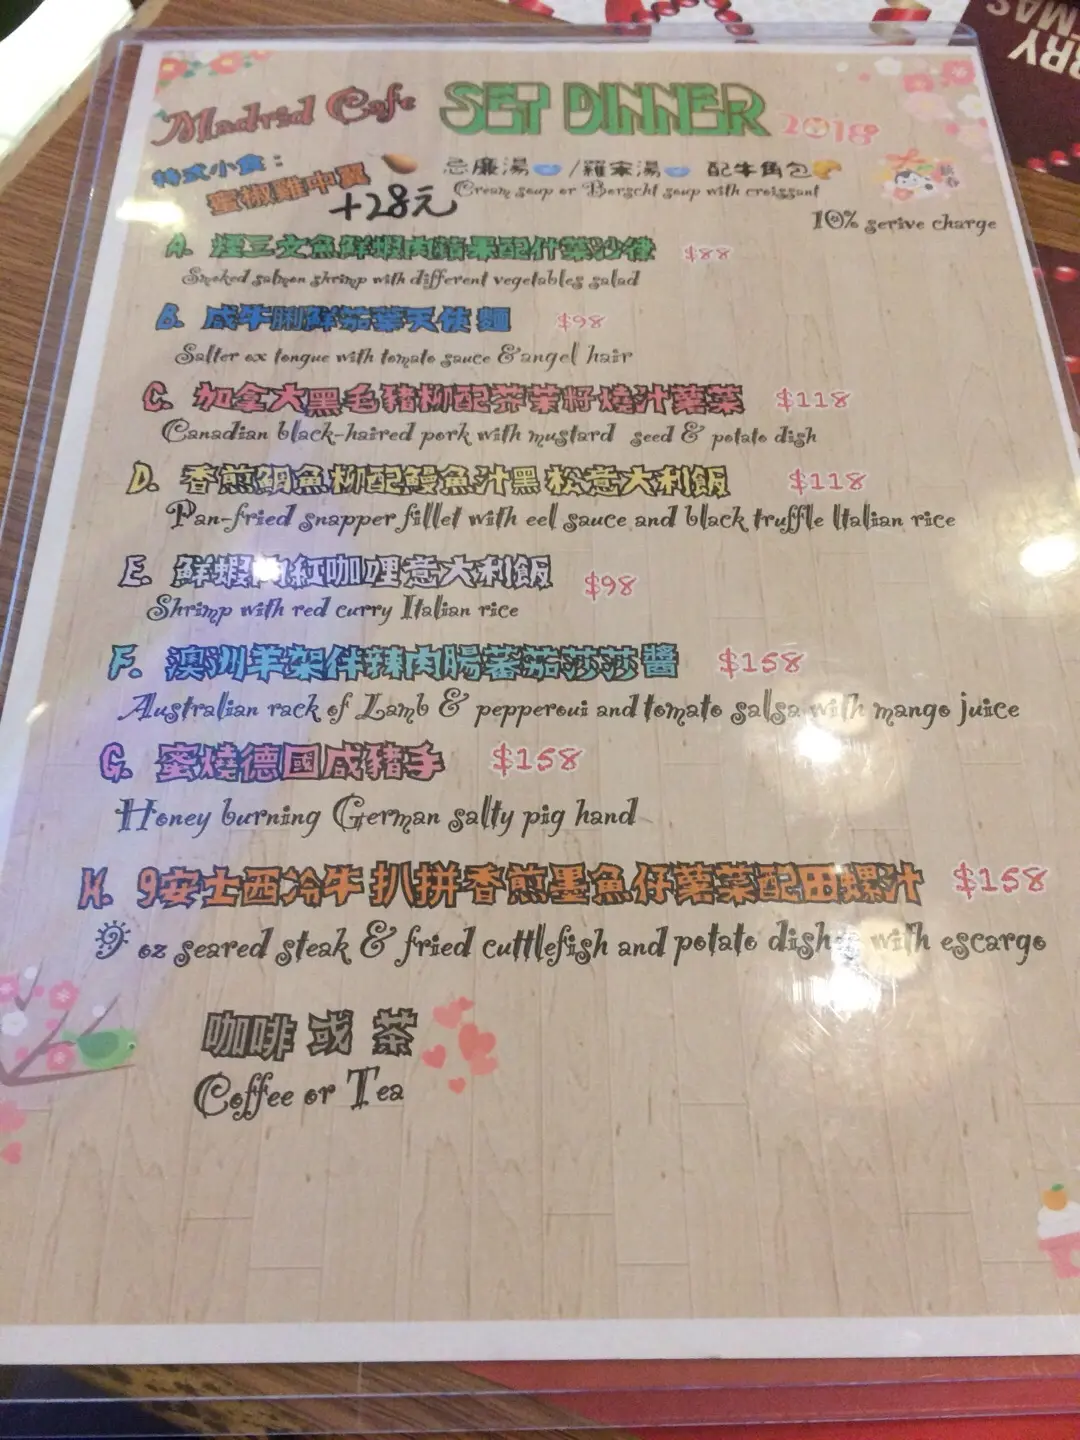 Madrid Cafe SET DINNER 2018
特式小食：
蜜椒雞中翼
+28元
忌廉湯 /羅宋湯 配牛角包
Cream soup or Borscht soup with croissant
10% serive charge
A. 煙三文魚鮮蝦肉蘋果配什菜沙律 $88
Smoked salmon shrimp with different vegetables salad
B. 咸牛脷鮮茄葉天使麵 $98
Salter ox tongue with tomato sauce & angel hair
C. 加拿大黑毛豬柳配芥茉籽燒汁薯菜 $118
Canadian black-haired pork with mustard seed & potato dish
D. 香煎鯛魚柳配鰻魚汁黑松意大利飯 $118
Pan-fried snapper fillet with eel sauce and black truffle Italian rice
E. 鮮蝦肉紅咖哩意大利飯 $98
Shrimp with red curry Italian rice
F. 澳洲羊架伴辣肉腸蕃茄莎莎醬 $158
Australian rack of Lamb & pepperoui and tomato salsa with mango juice
G. 蜜燒德国咸豬手 $158
Honey burning German salty pig hand
H. 9安士西冷牛扒拼香煎墨魚仔薯菜配田螺汁 $158
9 oz seared steak & fried cuttlefish and potato dish with escargo
咖啡 或 茶
Coffee or Tea